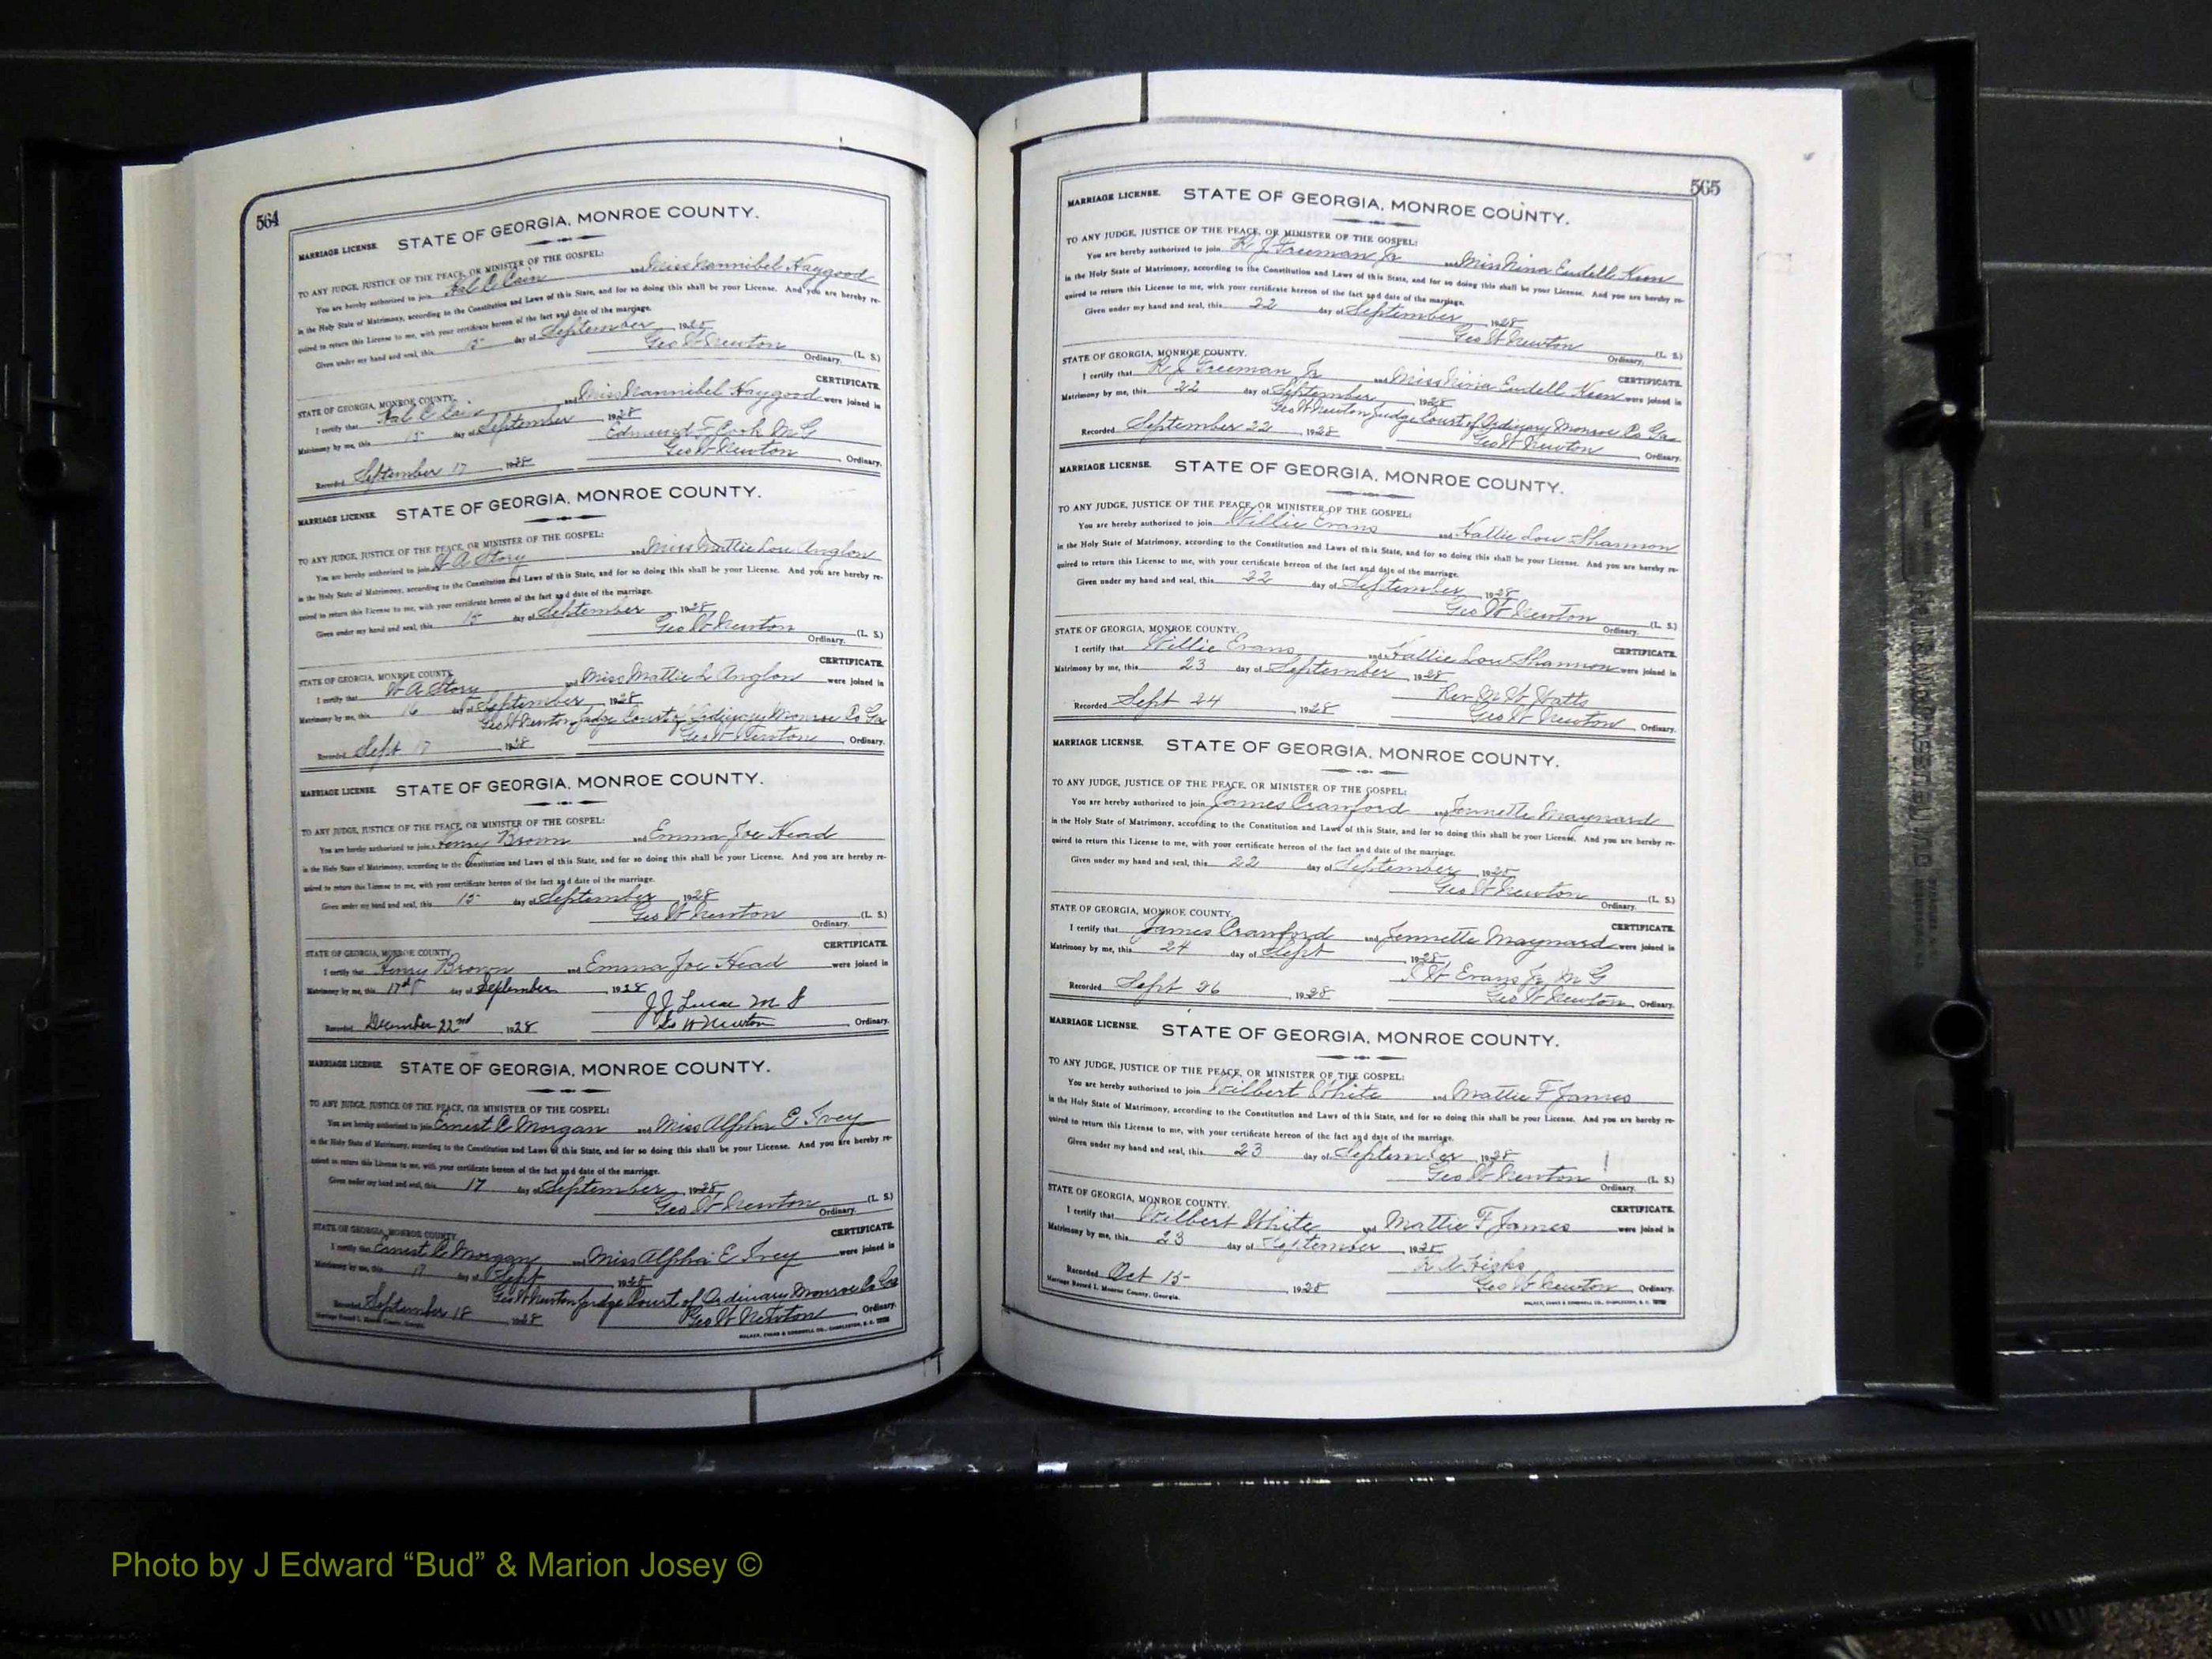 564
MARRIAGE LICENSE. STATE OF GEORGIA, MONROE COUNTY.
TO ANY JUDGE, JUSTICE OF THE PEACE, OR MINISTER OF THE GOSPEL:
You are hereby authorized to join Hal C Cain and Miss Nannibel Haygood
in the Holy State of Matrimony, according to the Constitution and Laws of this State, and for so doing this shall be your License. And you are hereby re-
quired to return this License to me, with your certificate hereon of the fact and date of the marriage.
Given under my hand and seal, this 15 day of September 1928
Geo W Newton (L. S.)
Ordinary.
CERTIFICATE.
STATE OF GEORGIA, MONROE COUNTY.
I certify that Hal C Cain and Miss Nannibel Haygood were joined in
Matrimony by me, this 15 day of September 1928
Edmund F Cook M G
Recorded September 17 1928 Geo W Newton Ordinary.
MARRIAGE LICENSE. STATE OF GEORGIA, MONROE COUNTY.
TO ANY JUDGE, JUSTICE OF THE PEACE, OR MINISTER OF THE GOSPEL:
You are hereby authorized to join A Story and Miss Mattie Lou Anglon
in the Holy State of Matrimony, according to the Constitution and Laws of this State, and for so doing this shall be your License. And you are hereby re-
quired to return this License to me, with your certificate hereon of the fact and date of the marriage.
Given under my hand and seal, this 15 day of September 1928
Geo W Newton (L. S.)
Ordinary.
CERTIFICATE.
STATE OF GEORGIA, MONROE COUNTY.
I certify that A Story and Miss Mattie L Anglon were joined in
Matrimony by me, this 16 day of September 1928
Geo W Newton Judge Court of Ordinary Monroe Co Ga
Recorded Sept 17 1928 Geo W Newton Ordinary.
MARRIAGE LICENSE. STATE OF GEORGIA, MONROE COUNTY.
TO ANY JUDGE, JUSTICE OF THE PEACE, OR MINISTER OF THE GOSPEL:
You are hereby authorized to join Henry Brown and Emma Joe Head
in the Holy State of Matrimony, according to the Constitution and Laws of this State, and for so doing this shall be your License. And you are hereby re-
quired to return this License to me, with your certificate hereon of the fact and date of the marriage.
Given under my hand and seal, this 15 day of September 1928
Geo W Newton (L. S.)
Ordinary.
CERTIFICATE.
STATE OF GEORGIA, MONROE COUNTY.
I certify that Henry Brown and Emma Joe Head were joined in
Matrimony by me, this 17 day of September 1928
J J Lucas M G
Recorded December 22nd 1928 Geo W Newton Ordinary.
MARRIAGE LICENSE. STATE OF GEORGIA, MONROE COUNTY.
TO ANY JUDGE, JUSTICE OF THE PEACE, OR MINISTER OF THE GOSPEL:
You are hereby authorized to join Ernest C Morgan and Miss Alpha E Ivey
in the Holy State of Matrimony, according to the Constitution and Laws of this State, and for so doing this shall be your License. And you are hereby re-
quired to return this License to me, with your certificate hereon of the fact and date of the marriage.
Given under my hand and seal, this 17 day of September 1928
Geo W Newton (L. S.)
Ordinary.
CERTIFICATE.
STATE OF GEORGIA, MONROE COUNTY.
I certify that Ernest C Morgan and Miss Alpha E Ivey were joined in
Matrimony by me, this 17 day of Sept 1928
Geo W Newton Judge Court of Ordinary Monroe Co Ga
Recorded September 18 1928 Geo W Newton Ordinary.
Marriage Record L Monroe County, Georgia. WALKER, EVANS & COGSWELL CO., CHARLESTON, S. C.
565
MARRIAGE LICENSE. STATE OF GEORGIA, MONROE COUNTY.
TO ANY JUDGE, JUSTICE OF THE PEACE, OR MINISTER OF THE GOSPEL:
You are hereby authorized to join R J Freeman Jr and Miss Nina Eudell Keen
in the Holy State of Matrimony, according to the Constitution and Laws of this State, and for so doing this shall be your License. And you are hereby re-
quired to return this License to me, with your certificate hereon of the fact and date of the marriage.
Given under my hand and seal, this 22 day of September 1928
Geo W Newton (L. S.)
Ordinary.
STATE OF GEORGIA, MONROE COUNTY. CERTIFICATE.
I certify that R J Freeman Jr and Miss Nina Eudell Keen were joined in
Matrimony by me, this 22 day of September 1928
Geo W Newton Judge Court of Ordinary Monroe Co Ga
Recorded September 22 1928 Geo W Newton Ordinary.
MARRIAGE LICENSE. STATE OF GEORGIA, MONROE COUNTY.
TO ANY JUDGE, JUSTICE OF THE PEACE, OR MINISTER OF THE GOSPEL:
You are hereby authorized to join Willie Evans and Hattie Lou Shannon
in the Holy State of Matrimony, according to the Constitution and Laws of this State, and for so doing this shall be your License. And you are hereby re-
quired to return this License to me, with your certificate hereon of the fact and date of the marriage.
Given under my hand and seal, this 22 day of September 1928
Geo W Newton (L. S.)
Ordinary.
STATE OF GEORGIA, MONROE COUNTY. CERTIFICATE.
I certify that Willie Evans and Hattie Lou Shannon were joined in
Matrimony by me, this 23 day of September 1928
Rev M W Watts
Recorded Sept 24 1928 Geo W Newton Ordinary.
MARRIAGE LICENSE. STATE OF GEORGIA, MONROE COUNTY.
TO ANY JUDGE, JUSTICE OF THE PEACE, OR MINISTER OF THE GOSPEL:
You are hereby authorized to join James Crawford and Jennette Maynard
in the Holy State of Matrimony, according to the Constitution and Laws of this State, and for so doing this shall be your License. And you are hereby re-
quired to return this License to me, with your certificate hereon of the fact and date of the marriage.
Given under my hand and seal, this 22 day of September 1928
Geo W Newton (L. S.)
Ordinary.
STATE OF GEORGIA, MONROE COUNTY. CERTIFICATE.
I certify that James Crawford and Jennette Maynard were joined in
Matrimony by me, this 24 day of Sept 1928
W Evans Jr M G
Recorded Sept 26 1928 Geo W Newton Ordinary.
MARRIAGE LICENSE. STATE OF GEORGIA, MONROE COUNTY.
TO ANY JUDGE, JUSTICE OF THE PEACE, OR MINISTER OF THE GOSPEL:
You are hereby authorized to join Wilbert White and Mattie F James
in the Holy State of Matrimony, according to the Constitution and Laws of this State, and for so doing this shall be your License. And you are hereby re-
quired to return this License to me, with your certificate hereon of the fact and date of the marriage.
Given under my hand and seal, this 23 day of September 1928
Geo W Newton (L. S.)
Ordinary.
STATE OF GEORGIA, MONROE COUNTY. CERTIFICATE.
I certify that Wilbert White and Mattie F James were joined in
Matrimony by me, this 23 day of September 1928
Recorded Oct 15 1928 Geo W Newton Ordinary.
Marriage Record L Monroe County, Georgia. WALKER, EVANS & COGSWELL CO., CHARLESTON, S. C.
Photo by J Edward “Bud” & Marion Josey ©